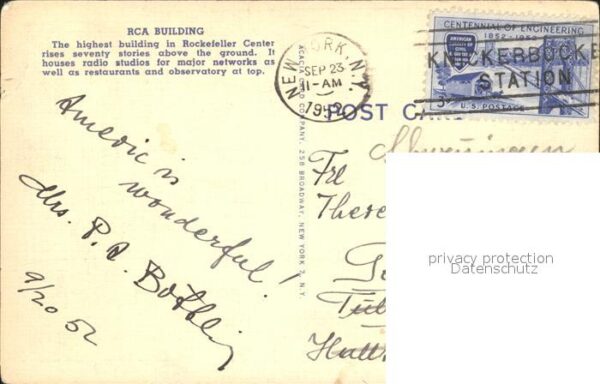 RCA BUILDING
The highest building in Rockefeller Center
rises seventy stories above the ground. It
houses radio studios for major networks as
well as restaurants and observatory at top.
Americ is
wonderful!
Mrs. P. A.
9/20 52
ACACIA CARD COMPANY, 258 BROADWAY, NEW YORK 7, N.Y.
NEW YORK, N.Y.
SEP 23
11-AM
1952
CENTENNIAL OF ENGINEERING
1852-1952
AMERICAN
SOCIETY OF
CIVIL
3¢
U.S. POSTAGE
KNICKERBOCKE
STATION
POST CA
There
privacy protection
Datenschutz